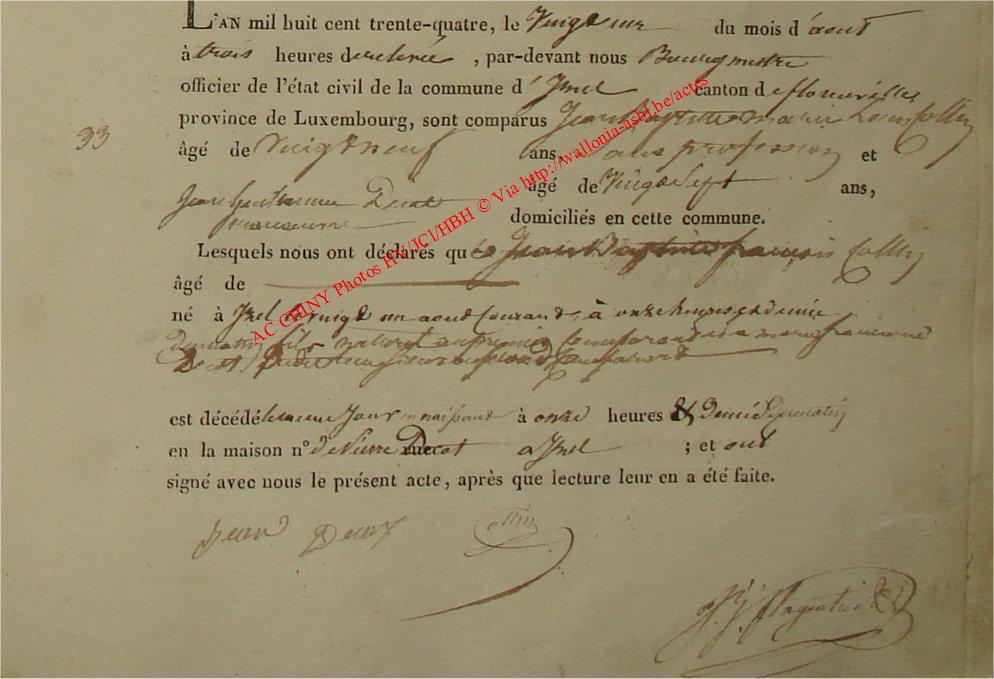 L'AN mil huit cent trente-quatre, le Vingt un du mois d'aout
à trois heures de relevée, par-devant nous Bourgmestre
officier de l'état civil de la commune d'Izel canton de florenville
province de Luxembourg, sont comparus Jean Baptiste marie Collin
33
âgé de Vingt neuf ans, Sans profession et
Jean Decot âgé de Vingt Sept ans,
domiciliés en cette commune.
Lesquels nous ont déclarés que Jean Baptiste françois Collin
âgé de
né à Izel le vingt un aout Courant, à onze heures et demie
du matin fils naturel du premier Comparant et de marie françoise
Decot
est décédé le meme Jour en naissant à onze heures & demie du matin
en la maison n° de Pierre Decot à Izel ; et ont
signé avec nous le présent acte, après que lecture leur en a été faite.
Jean Decot
AC CHINY Photos HF/JCI/HBH © Via http://wallonia-asbl.be/actes